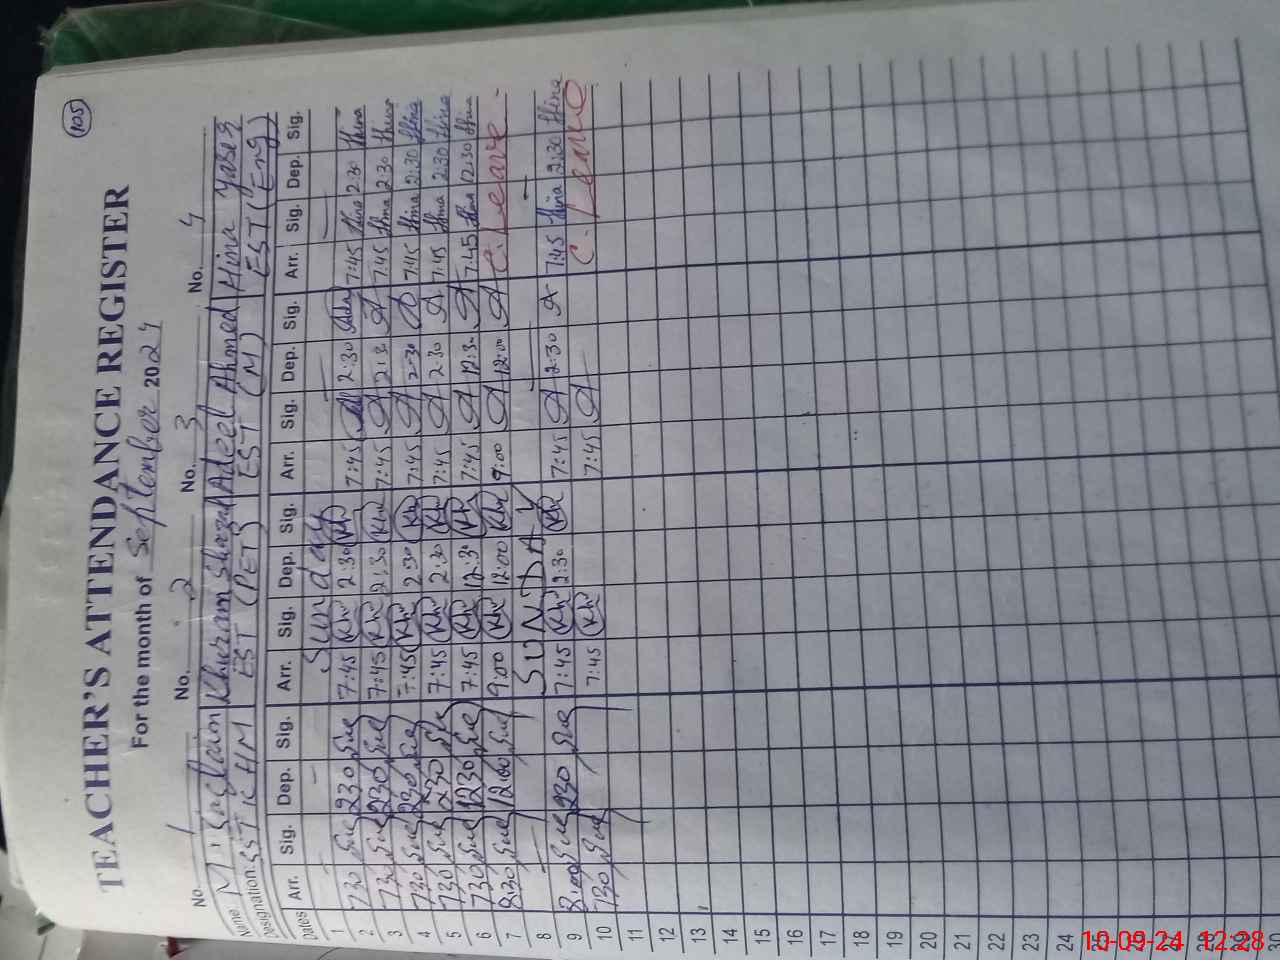 105
TEACHER'S ATTENDANCE REGISTER
For the month of September 2024
No. 1 No. 2 No. 3 No. 4
Name: M. Khuram Shazad Adeel Ahmed Hina
Designation: SST IC HM EST (PET) EST (M) EST (Eng)
Dates Arr. Sig. Dep. Sig. Arr. Sig. Dep. Sig. Arr. Sig. Dep. Sig. Arr. Sig. Dep. Sig.
1 Sunday
2 730 230 7:45 Kh 2:30 Kh 7:45 2:30 7:45 Hina 2:30 Hina
3 730 230 7:45 Kh 2:30 Kh 7:45 A 2:3 A 7:45 Hina 2:30 Hina
4 730 230 7:45 Kh 2:30 Kh 7:45 A 2:30 A 7:45 Hina 2:30 Hina
5 730 230 7:45 Kh 2:30 Kh 7:45 A 2:30 A 7:45 Hina 2:30 Hina
6 730 1230 7:45 Kh 12:30 Kh 7:45 A 12:30 A 7:45 Hina 12:30 Hina
7 8:30 12:00 9:00 Kh 12:00 Kh 9:00 A 12:00 A C. Leave
8 SUNDAY
9 8:00 230 7:45 Kh 2:30 Kh 7:45 A 2:30 A 7:45 Hina 2:30 Hina
10 730 7:45 Kh 7:45 A C. Leave
11
12
13
14
15
16
17
18
19
20
21
22
23
24
25
26
27
28
29
30
10-09-24 12:28